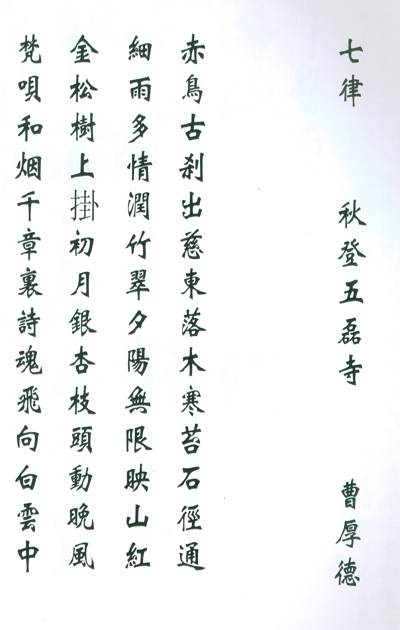 七律 秋登五磊寺 曹厚德
赤鳥古刹出慈東落木寒苔石徑通
細雨多情潤竹翠夕陽無限映山紅
金松樹上掛初月銀杏枝頭動晚風
梵唄和烟千章裏詩魂飛向白雲中